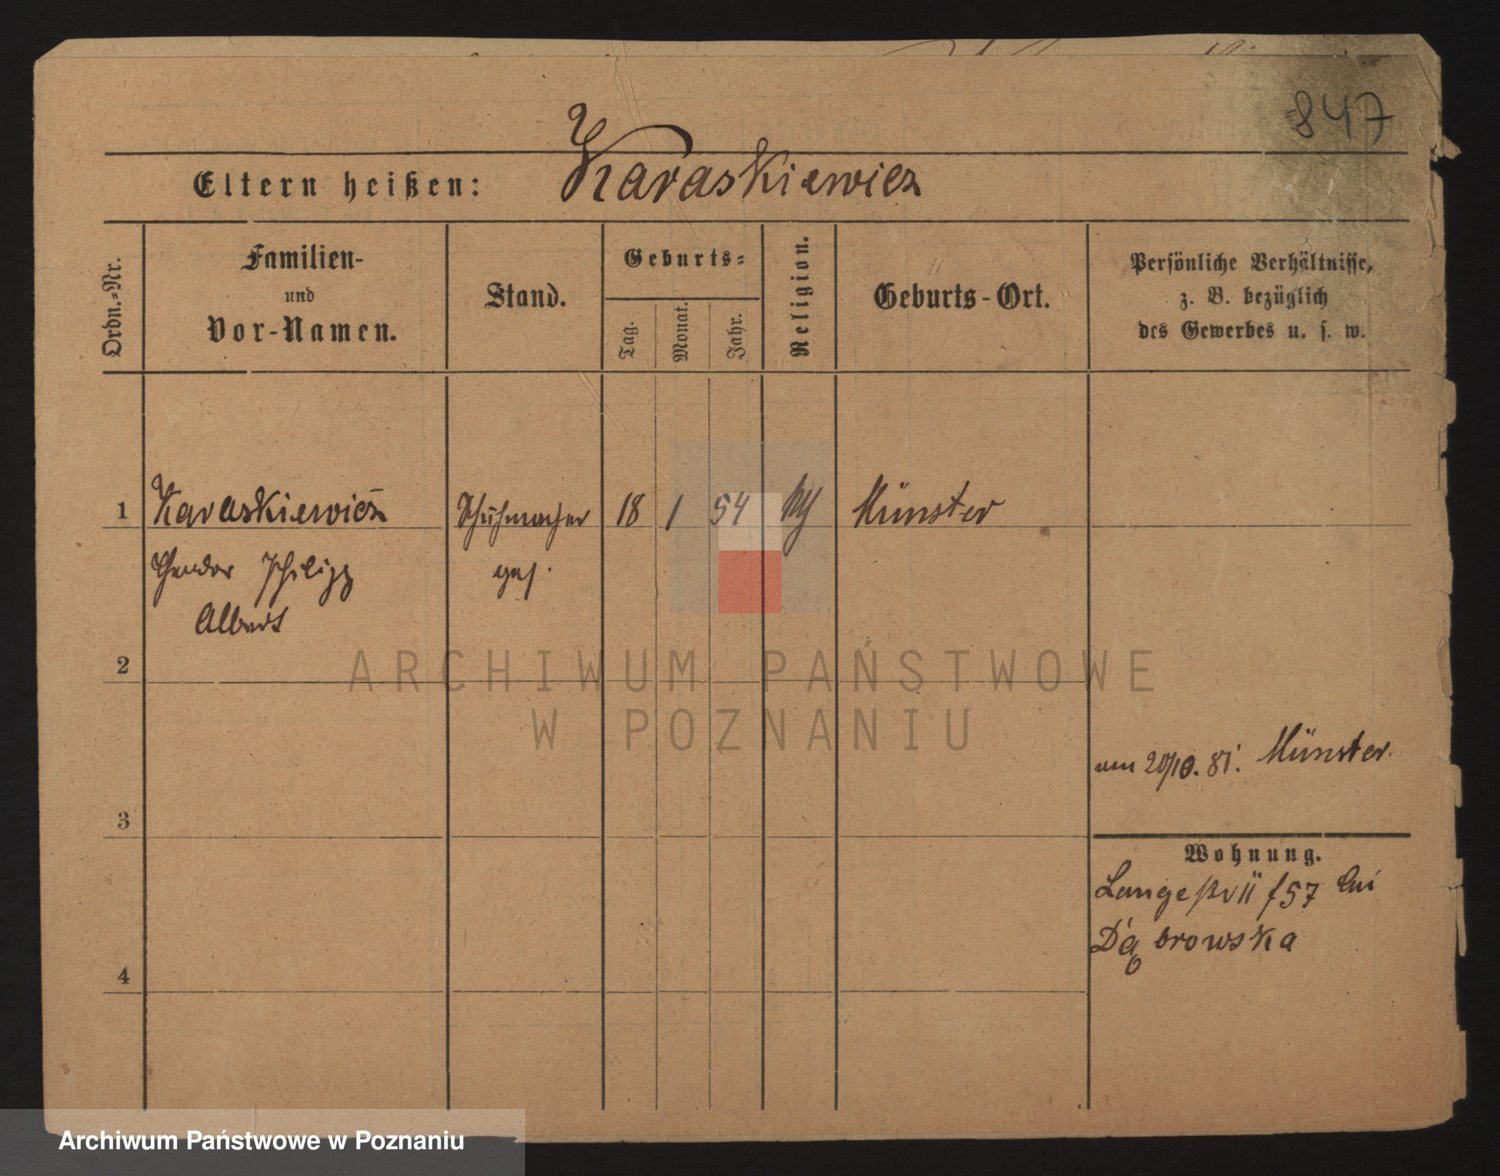 847
Eltern heißen: Karaskiewicz
Ordn.-Nr.
Familien-
und
Vor-Namen.
Stand.
Geburts-
Tag.
Monat.
Jahr.
Religion.
Geburts-Ort.
Persönliche Verhältnisse,
z. B. bezüglich
des Gewerbes u. s. w.
1 Karaskiewicz Schuhmacher 18 1 54 Münster
Theodor Philipp ges.
Albert
2
ARCHIWUM PAŃSTWOWE
W POZNANIU
am 20/10. 81. Münster.
3
Wohnung.
Langestr 57 bei
Dąbrowska
4
Archiwum Państwowe w Poznaniu